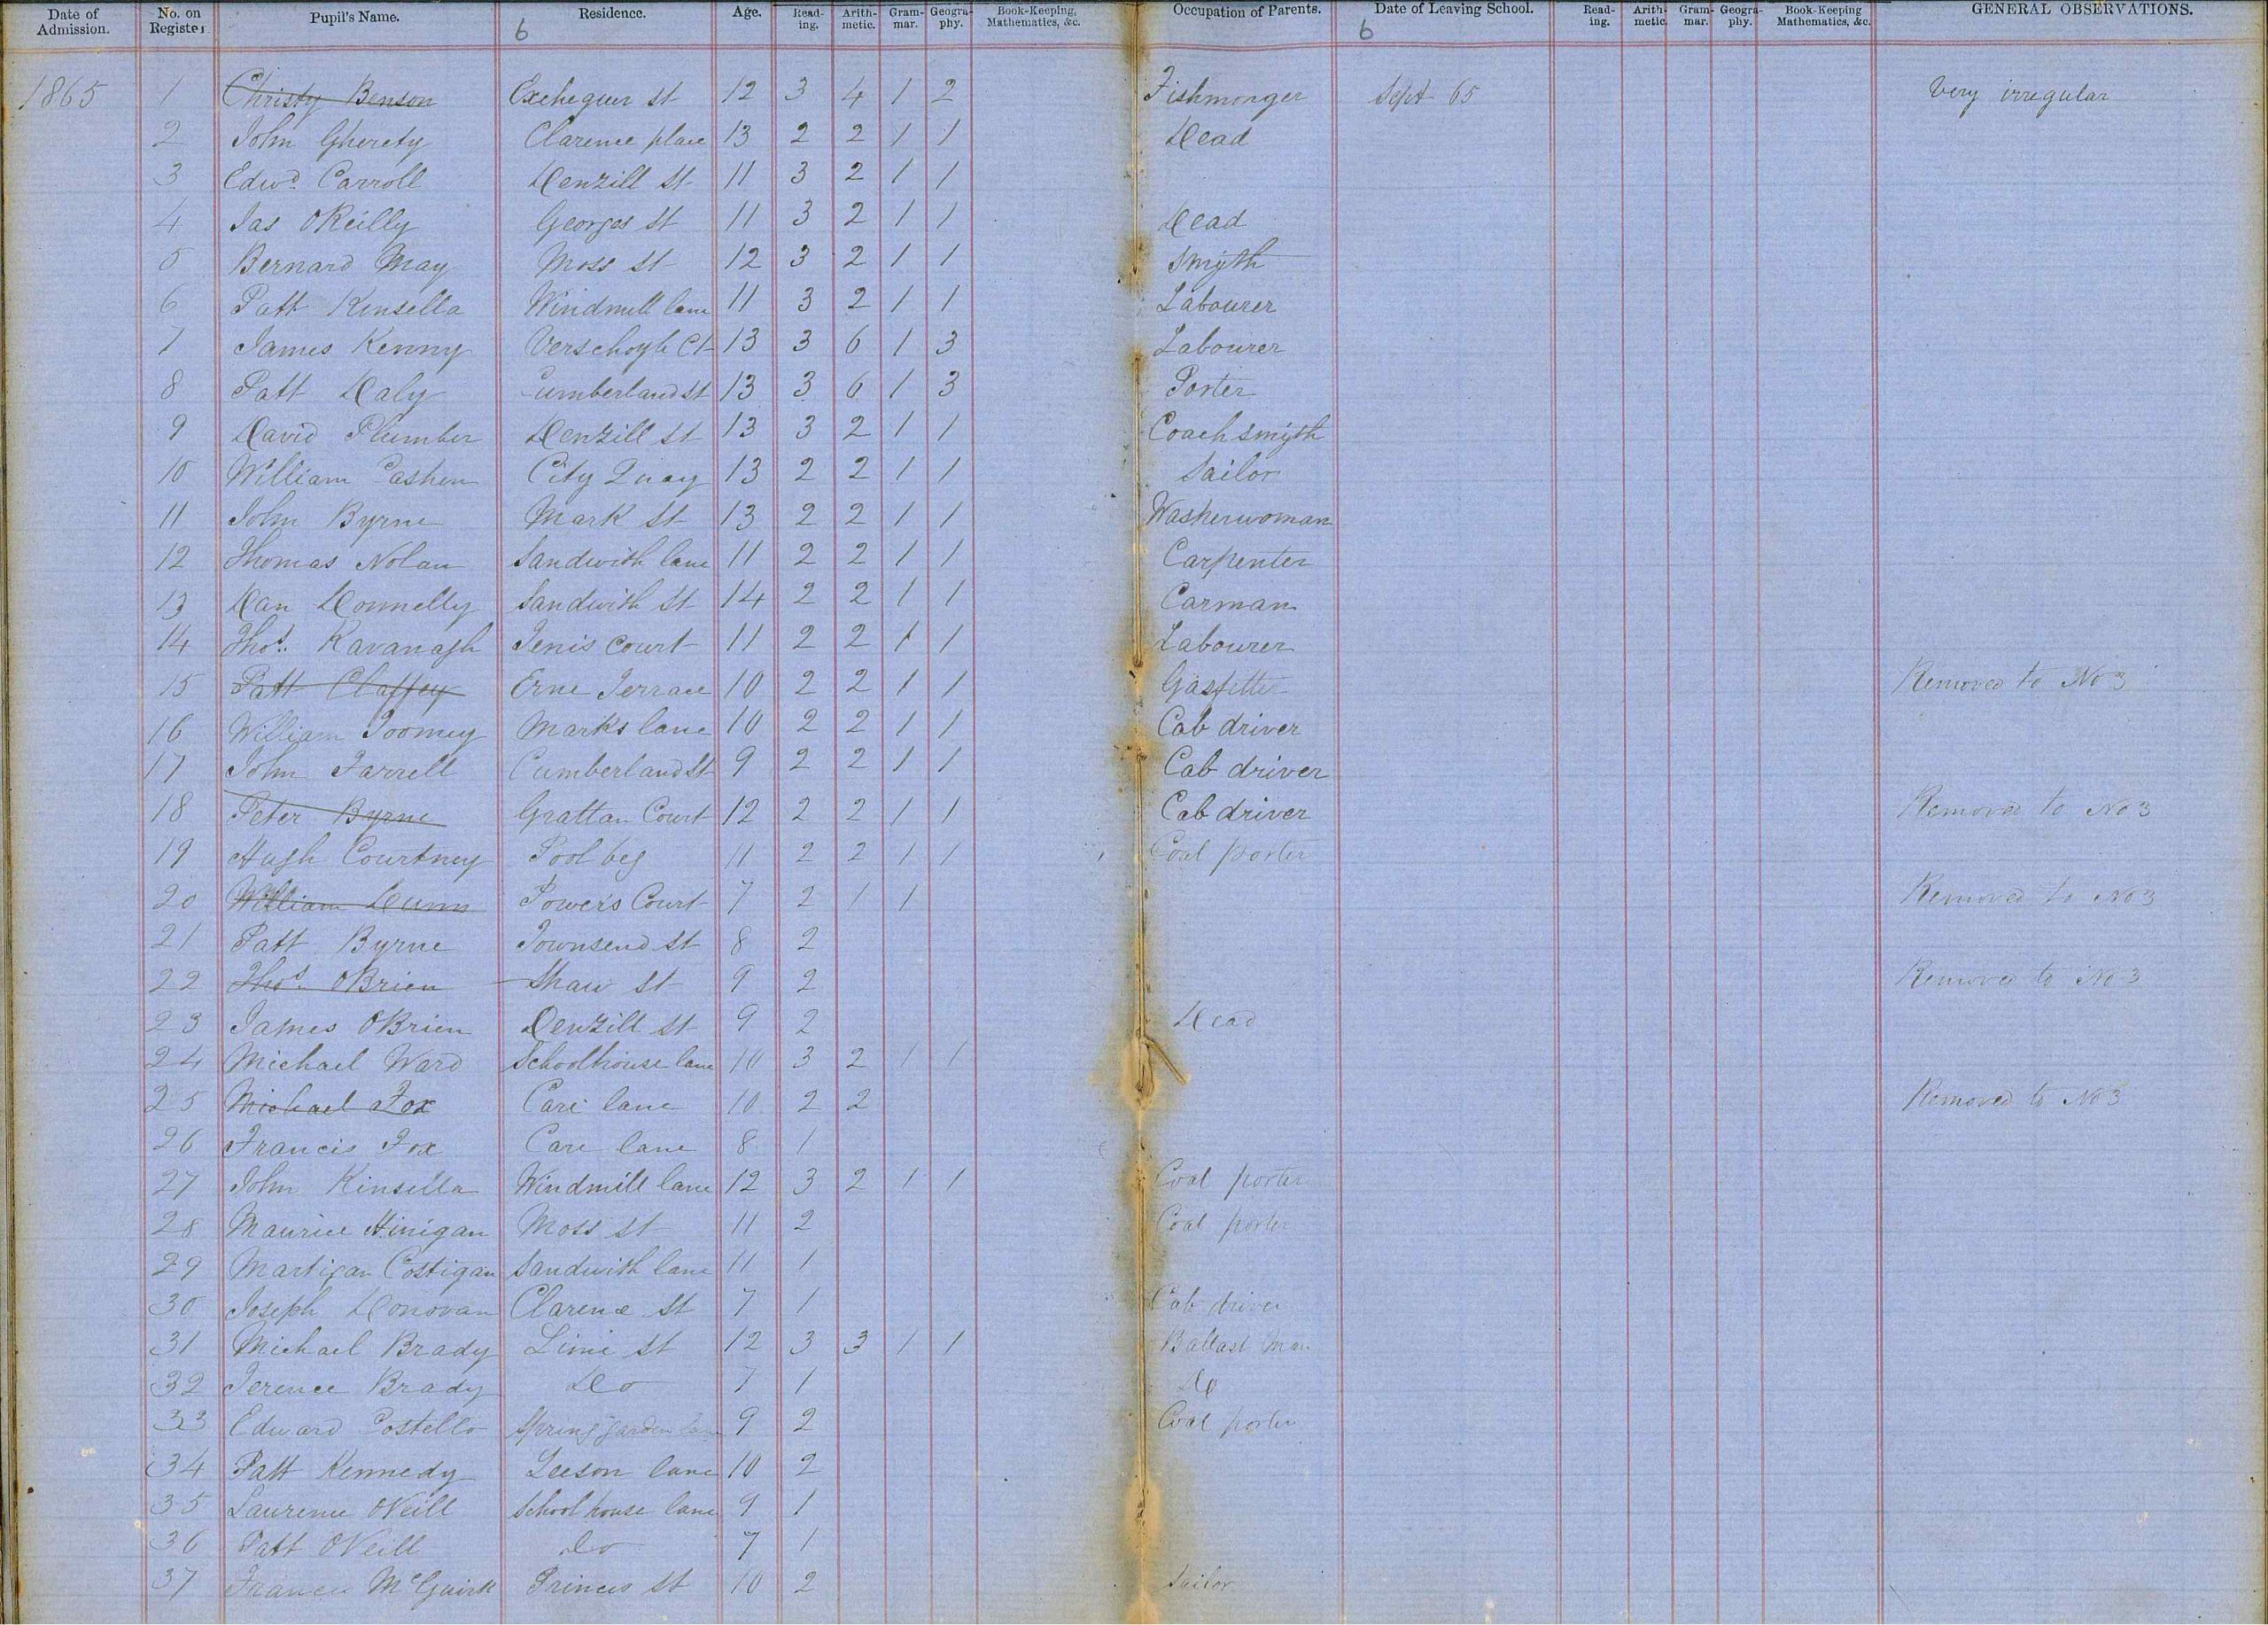 Date of Admission. No. on Register Pupil's Name. Residence. Age. Reading. Arithmetic. Grammar. Geography. Book-Keeping, Mathematics, &c. Occupation of Parents. Date of Leaving School. Reading. Arithmetic. Grammar. Geography. Book-Keeping Mathematics, &c. GENERAL OBSERVATIONS.
6 6
1865 1 Christy Benson Exchequer st 12 3 4 1 2 Fishmonger Sept 65 Very irregular
2 John Gherety Clarence place 13 2 2 1 1 Dead
3 Edwd. Carroll Denzill St 11 3 2 1 1
4 Jas OReilly Georges st 11 3 2 1 1 Dead
5 Bernard May Moss st 12 3 2 1 1 Smyth
6 Patt Kinsella Windmill lane 11 3 2 1 1 Labourer
7 James Kenny Verschoyle Ct 13 3 6 1 3 Labourer
8 Patt Daly Cumberland st 13 3 6 1 3 Porter
9 David Plumber Denzill st 13 3 2 1 1 Coach smyth
10 William Cashen City Quay 13 2 2 1 1 Sailor
11 John Byrne Mark St 13 2 2 1 1 Washerwoman
12 Thomas Nolan Sandwith lane 11 2 2 1 1 Carpenter
13 Dan Donnelly Sandwith St 14 2 2 1 1 Carman
14 Thos. Kavanagh Jenis Court 11 2 2 1 1 Labourer
15 Patt Claffey Erne Terrace 10 2 2 1 1 Gasfitter Removed to No 3
16 William Toomey Marks lane 10 2 2 1 1 Cab driver
17 John Farrell Cumberland St 9 2 2 1 1 Cab driver
18 Peter Byrne Grattan Court 12 2 2 1 1 Cab driver Removed to No 3
19 Hugh Courtney Pool beg 11 2 2 1 1 Coal porter
20 William Dunn Powers Court 7 2 1 1 Removed to No 3
21 Patt Byrne Townsend st 8 2
22 Thos. OBrien Shaw St 9 2 Removed to No 3
23 James OBrien Denzill st 9 2 Dead
24 Michael Ward Schoolhouse lane 10 3 2 1 1
25 Michael Fox Care lane 10 2 2 Removed to No 3
26 Francis Fox Care lane 8 1
27 John Kinsella Windmill lane 12 3 2 1 1 Coal porter
28 Maurice Hinigan Moss st 11 2 Coal porter
29 Martigan Costigan Sandwith lane 11 1
30 Joseph Donovan Clarence st 7 1 Cab driver
31 Michael Brady Lime st 12 3 3 1 1 Ballast Man
32 Terence Brady Do 7 1 Do
33 Edward Costello Spring garden lane 9 2 Coal porter
34 Patt Kennedy Leeson lane 10 2
35 Laurence ONeill School house lane 9 1
36 Patt ONeill Do 7 1
37 Francis McGuirk Princes st 10 2 Sailor